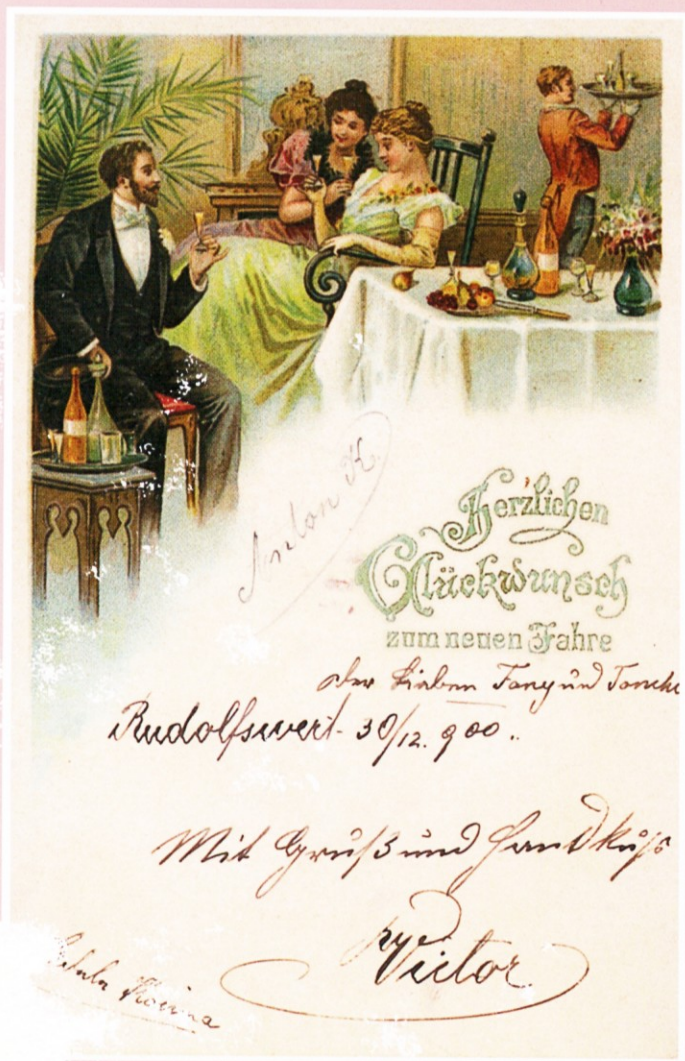 Anton K.
Herzlichen
Glückwunsch
zum neuen Jahre
der lieben Fany und
Rudolfswert 30/12. 900.
Mit Gruß und Handkuß
Victor